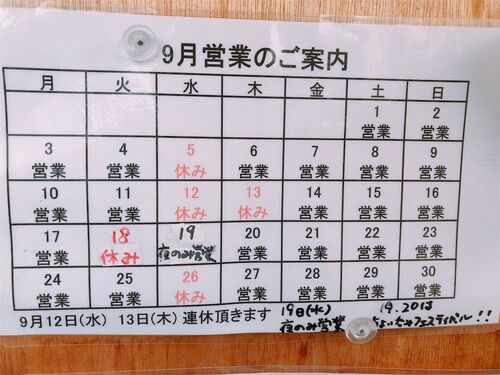 9月営業のご案内
月 火 水 木 金 土 日
1 2
営業 営業
3 4 5 6 7 8 9
営業 営業 休み 営業 営業 営業 営業
10 11 12 13 14 15 16
営業 営業 休み 休み 営業 営業 営業
17 18 19 20 21 22 23
営業 休み 夜のみ営業 営業 営業 営業 営業
24 25 26 27 28 29 30
営業 営業 休み 営業 営業 営業 営業
9月12日(水) 13日(木) 連休頂きます
19日(水)
夜のみ営業
19.20は
ちょいちゃフェスティバル!!